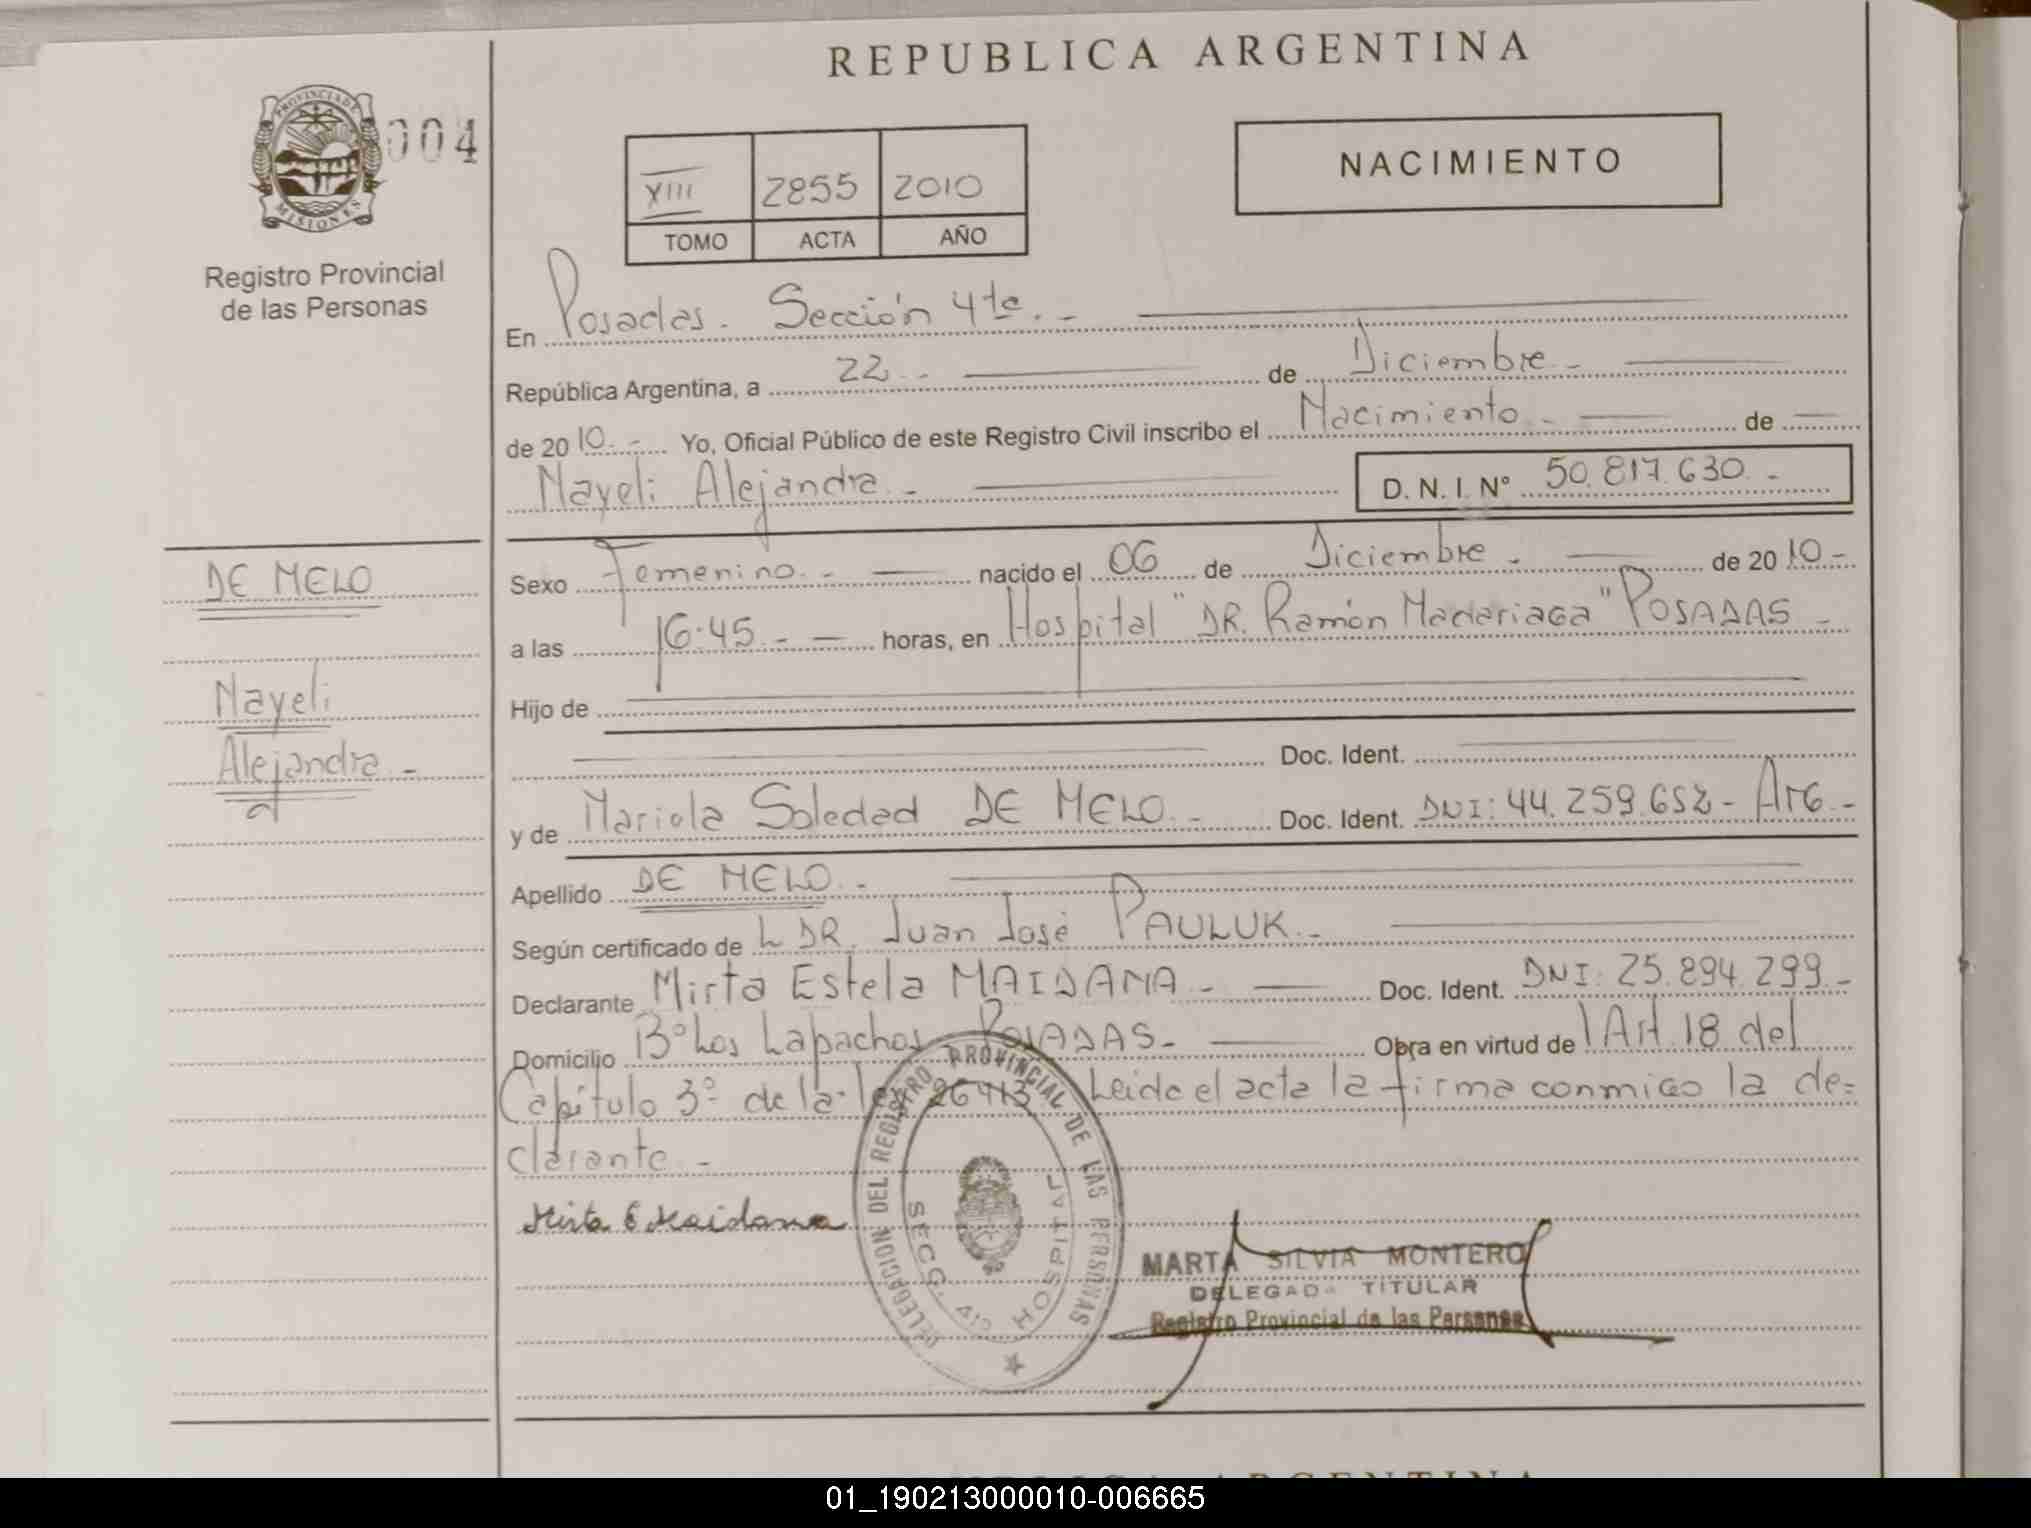 REPUBLICA ARGENTINA
PROVINCIA DE
MISIONES
004
Registro Provincial
de las Personas
XIII 2855 2010
TOMO ACTA AÑO
NACIMIENTO
En Posadas. Sección 4ta.-
República Argentina, a 22.- de Diciembre.-
de 2010.- Yo, Oficial Público de este Registro Civil inscribo el Nacimiento.- de
Nayeli Alejandra.- D. N. I. Nº 50.817.630.-
DE MELO
Nayeli
Alejandra.-
Sexo Femenino.- nacido el 06 de Diciembre.- de 2010.-
a las 16:45.- horas, en Hospital "DR. Ramón Madariaga" POSADAS.-
Hijo de
Doc. Ident.
y de Mariela Soledad DE MELO.- Doc. Ident. DNI: 44.259.652- ARG.-
Apellido DE MELO.-
Según certificado de DR. Juan José PAULUK.-
Declarante Mirta Estela MAIDANA.- Doc. Ident. DNI: 25.894.299.-
Domicilio Bº Los Lapachos POSADAS.- Obra en virtud de Art. 18 del
Capítulo 3º de la ley 26413 Leida el acta la firma conmigo la de=
clarante.-
Mirta E Maidana
DELEGACION DEL REGISTRO PROVINCIAL DE LAS PERSONAS
SECC. 4ta HOSPITAL
MARTA SILVIA MONTERO
DELEGADA TITULAR
Registro Provincial de las Personas
01_190213000010-006665